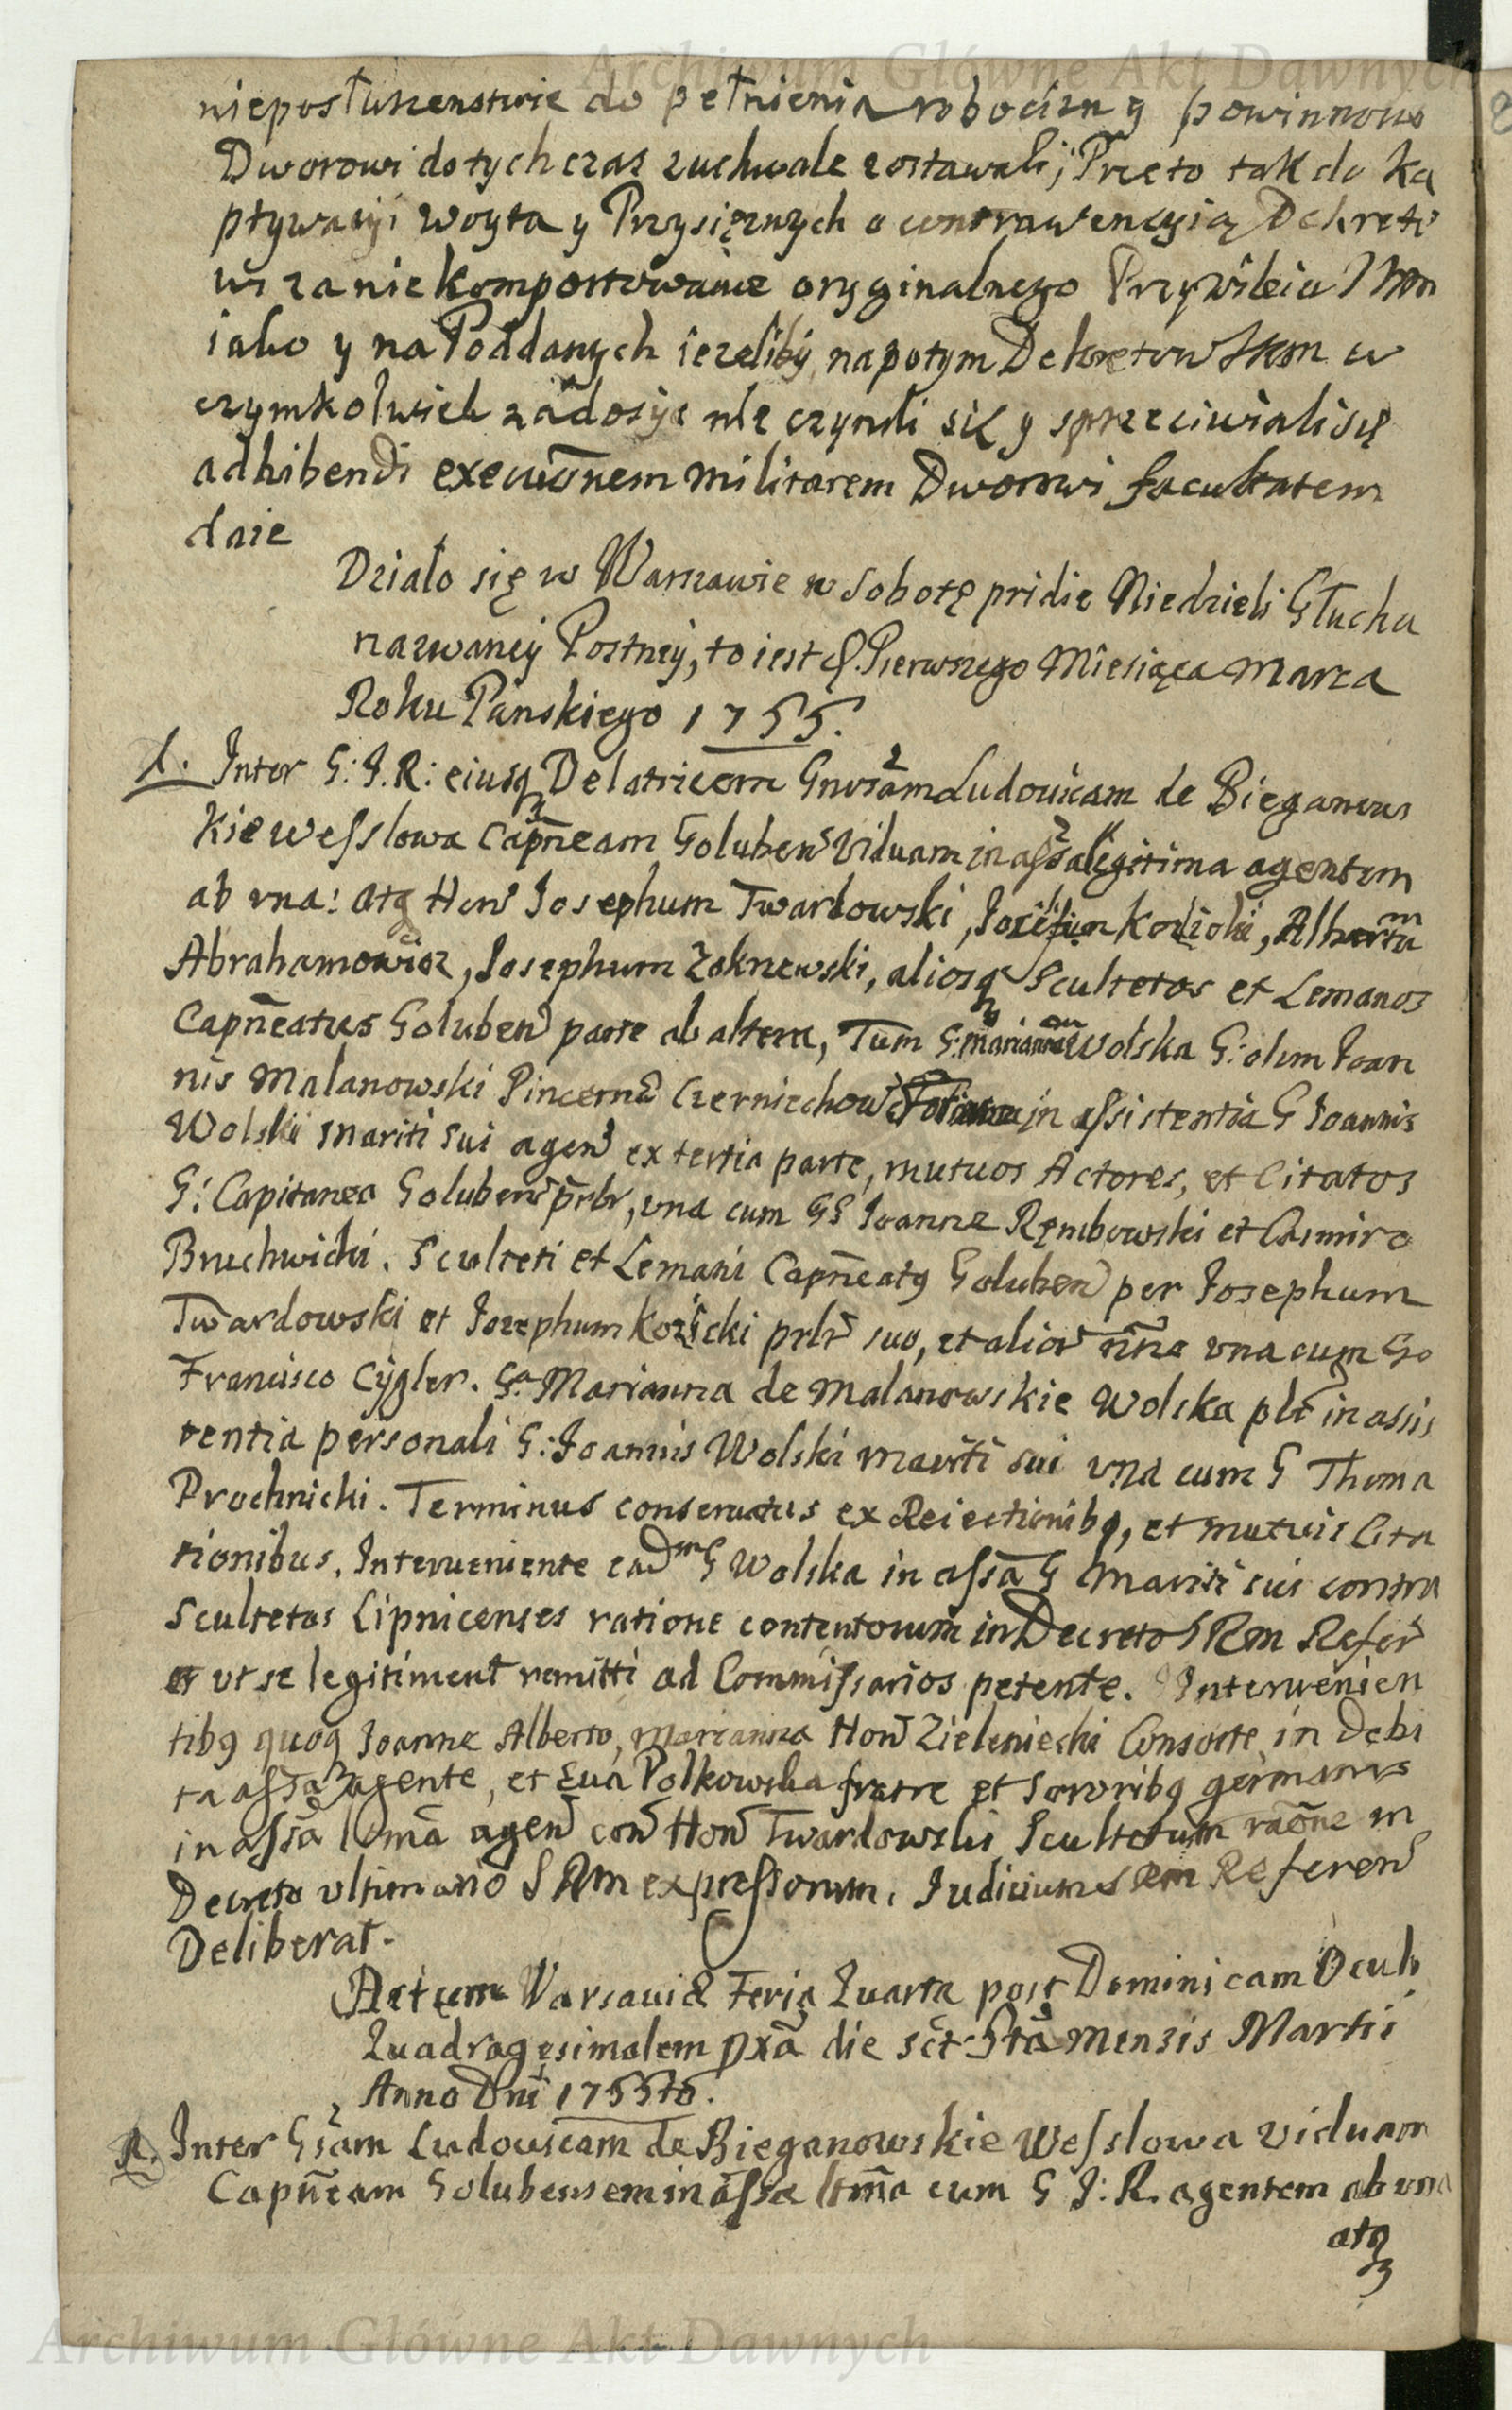 Archiwum Główne Akt Dawnych
nieposłuszenstwie do pełnienia robocizny powinnowe
Dworowi dotychczas zuchwale zostawali; Przeto tak do Ka
ptywacyi woyta y Przysiężnych o contrawencyią Dekreto
w za niekomportowanie oryginalnego Przywileiu
iako y na Poddanych iezeliby napotym Dekretow Skm w
czymkolwiek zadosyc nie czynili się y sprzeciwiali się
adhibendi execuōnem militarem Dworowi facultatem
daie
Działo się w Warszawie w Sobotę pridie Niedzieli Głucha
nazwaney Postney, to iest d. Pierwszego Miesiąca Marca
Roku Panskiego 1755.
1. Inter G: J. R: eiusq Delatricem Gnosam Ludovicam de Bieganows
kie wesslowa Capneam Goluben Viduam in assa legitima agentem
ab una: atq Hon Josephum Twardowski, Josephum Kozicki, Albertum
Abrahamowicz, Josephum Zoknewski, aliosq Scultetos et Lemanos
Capneatus Goluben parte ab altera, Tum G. Mariannam Wolska G: olim Joan
nis Malanowski Pincerna Czerniechow in assistentia G Joannis
Wolski mariti sui agen ex tertia parte, mutuos Actores, et Citatos
G: Capitanea Goluben prlr, una cum GG Joanne Rembowski et Casimiro
Bruchwicki. Sculteti et Lemani Capneatq Goluben per Josephum
Twardowski et Josephum Kozicki prlr suo, et alior nne una cum Go
Francisco Cygler. Ga Marianna de Malanowskie Wolska plr in assis
tentia personali G: Joannis Wolski mariti sui una cum G Thoma
Prochnicki. Terminus conservatus ex Reiectionibq, et mutuis Cita
tionibus. Interveniente ead G Wolska in assa G Mariti sui contra
Scultetos Lipnicenses ratione contentorum in Decreto SRm Refer
ut se legitiment remitti ad Commissarios petente. Intervenien
tibq quoq Joanne Alberto, Marianna Hon Zieleniecki Consorte, in debi
ta assa agente, et Eva Polkowska fratre et sororibq germanis
in assa ltma agen con Hon Twardowski Scultetum raone in
Decreto ultimario SRm expressorum. Judicium SRm Referen
Deliberat.
Actum Varsavia Feria Quarta post Dominicam Oculi
Quadragesimalem pxa die sct 5ta Mensis Martii
Anno Dni 1755to.
1. Inter Gsam Ludovicam de Bieganowskie Wesslowa viduam
Capneam Golubensem in assa ltma cum G J: R. agentem ab una
atq
Archiwum Główne Akt Dawnych